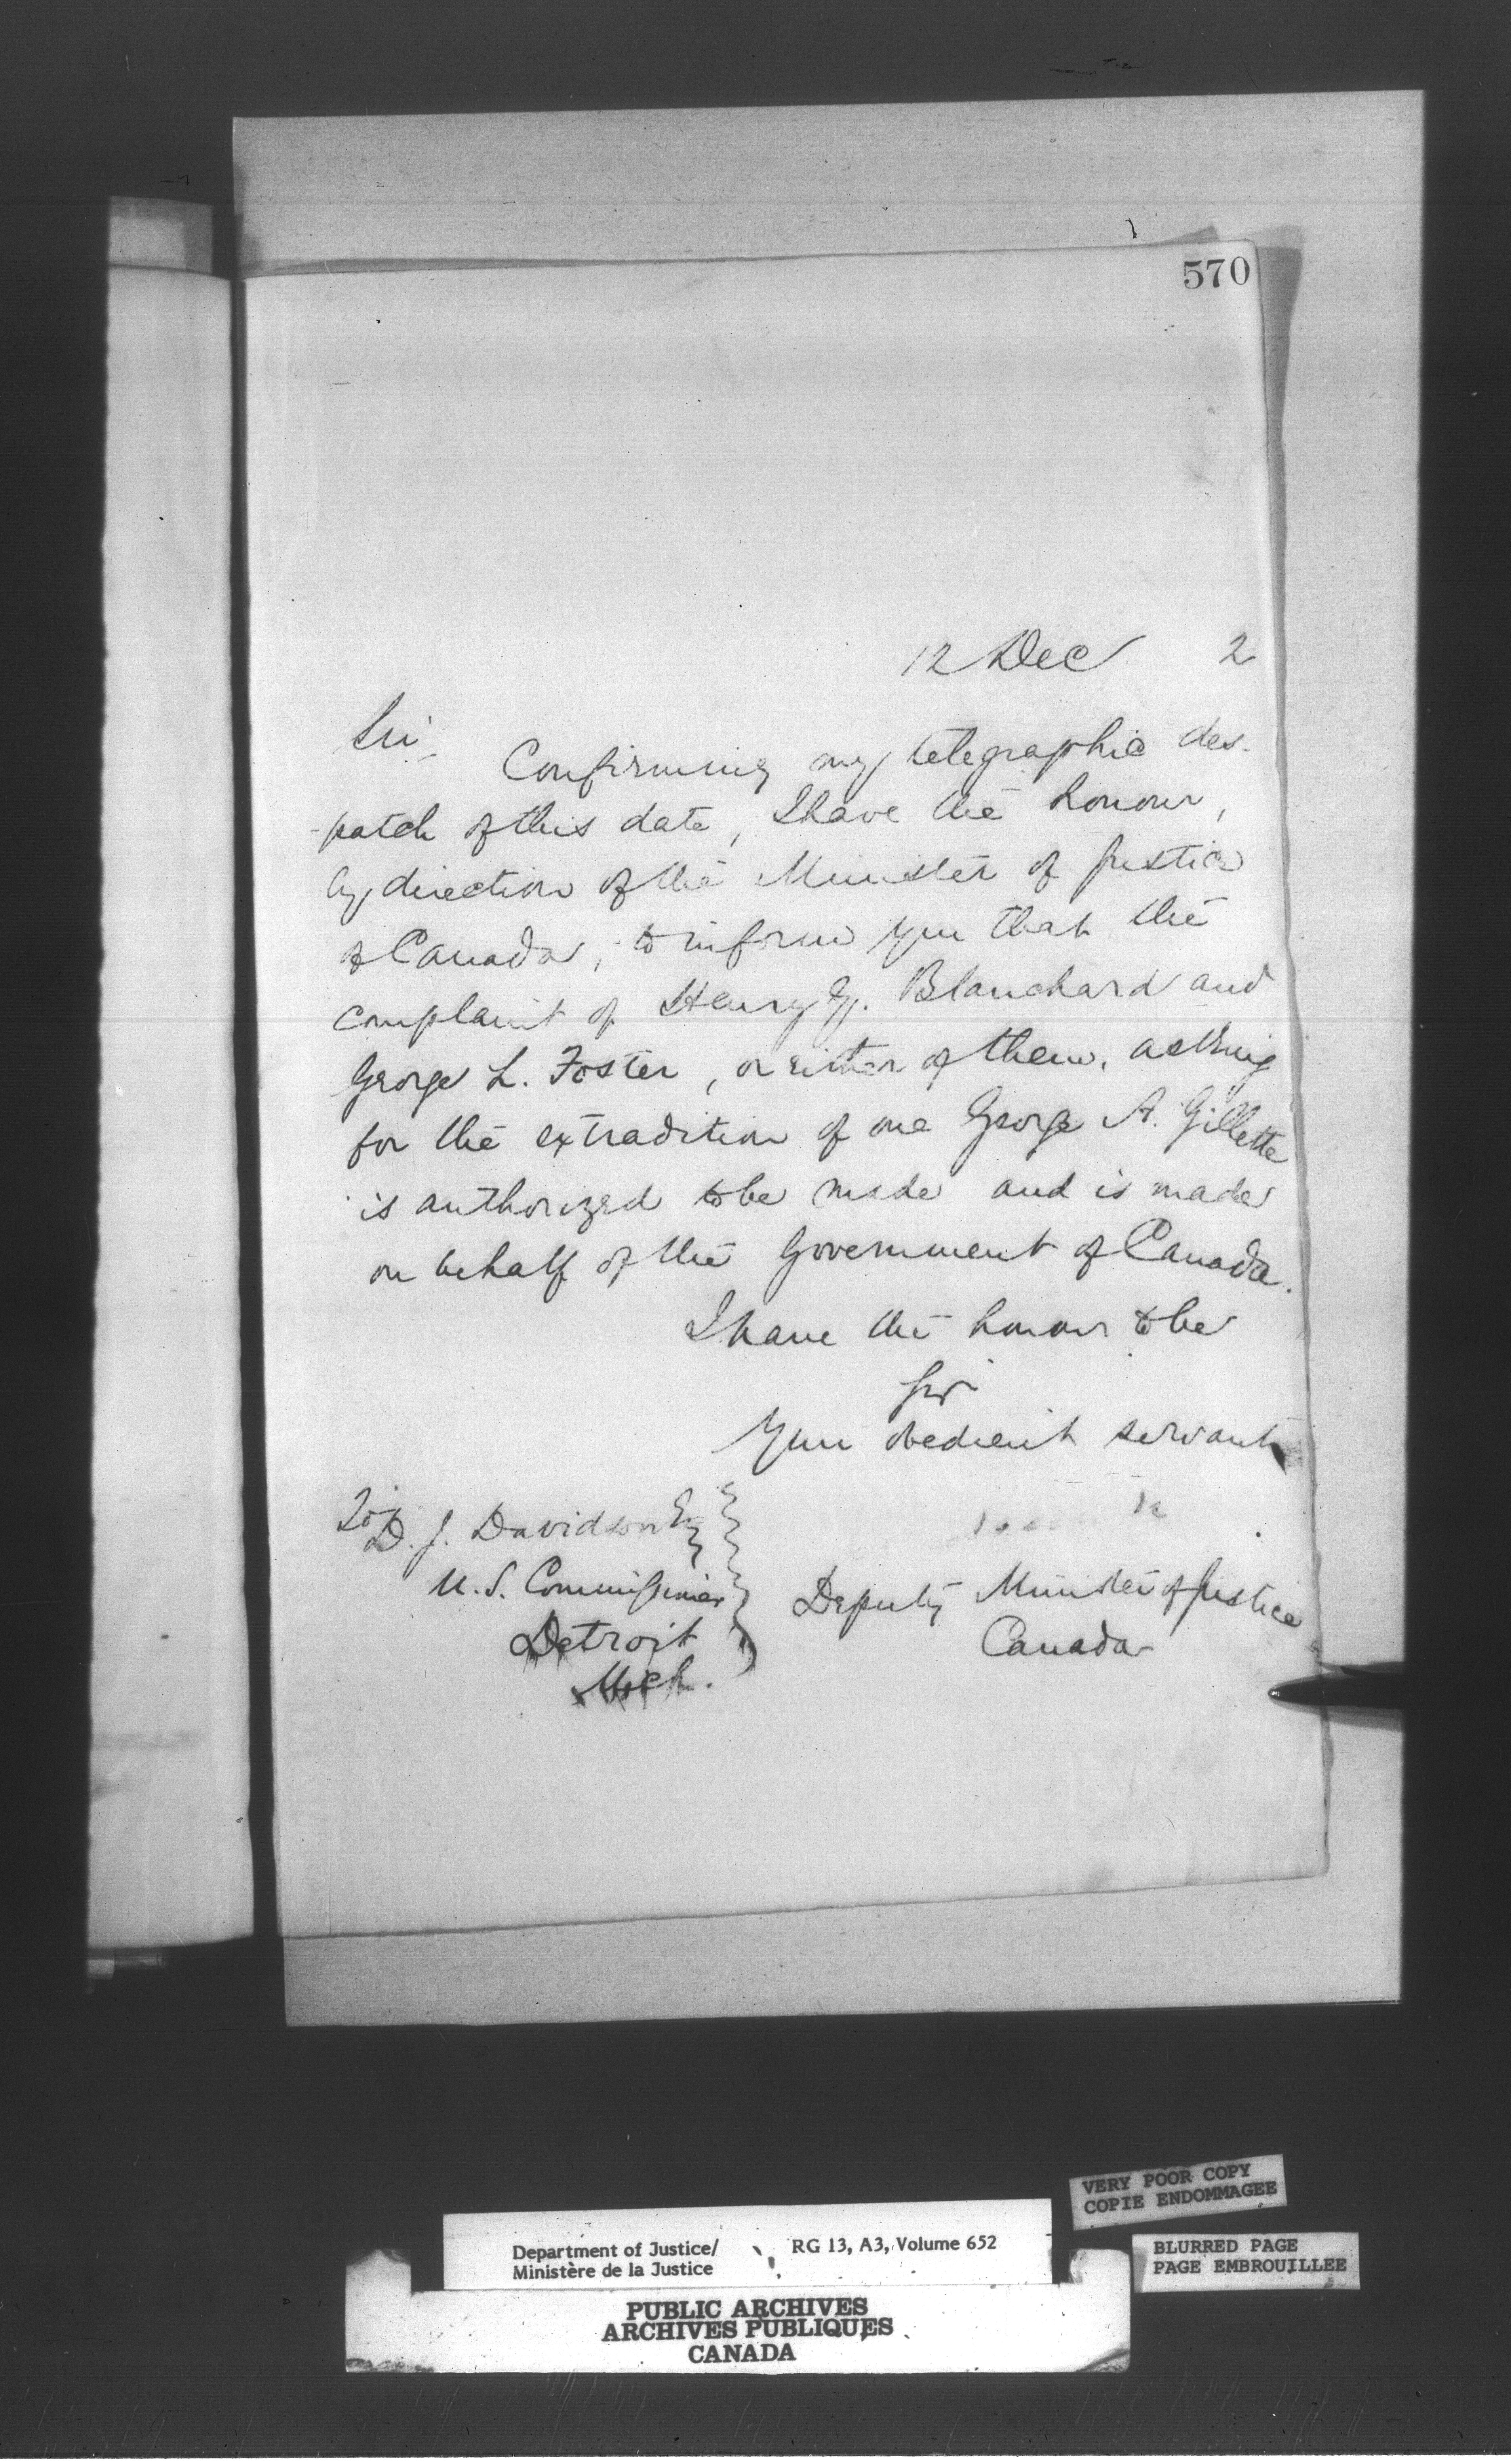 570
12 Dec 2
Sir,
Confirming my telegraphic des-
patch of this date, I have the honour,
by direction of the Minister of Justice
of Canada, to inform you that the
complaint of Henry G. Blanchard and
George L. Foster, or either of them, asking
for the extradition of one George A. Gillette
is authorized to be made and is made
on behalf of the Government of Canada.
I have the honour to be
Sir
Your obedient servant
To
D. J. Davidson Esq
U.S. Commissioner
Detroit
Mich.
Deputy Minister of Justice
Canada
VERY POOR COPY
COPIE ENDOMMAGEE
BLURRED PAGE
PAGE EMBROUILLEE
Department of Justice/ RG 13, A3, Volume 652
Ministère de la Justice
PUBLIC ARCHIVES
ARCHIVES PUBLIQUES
CANADA